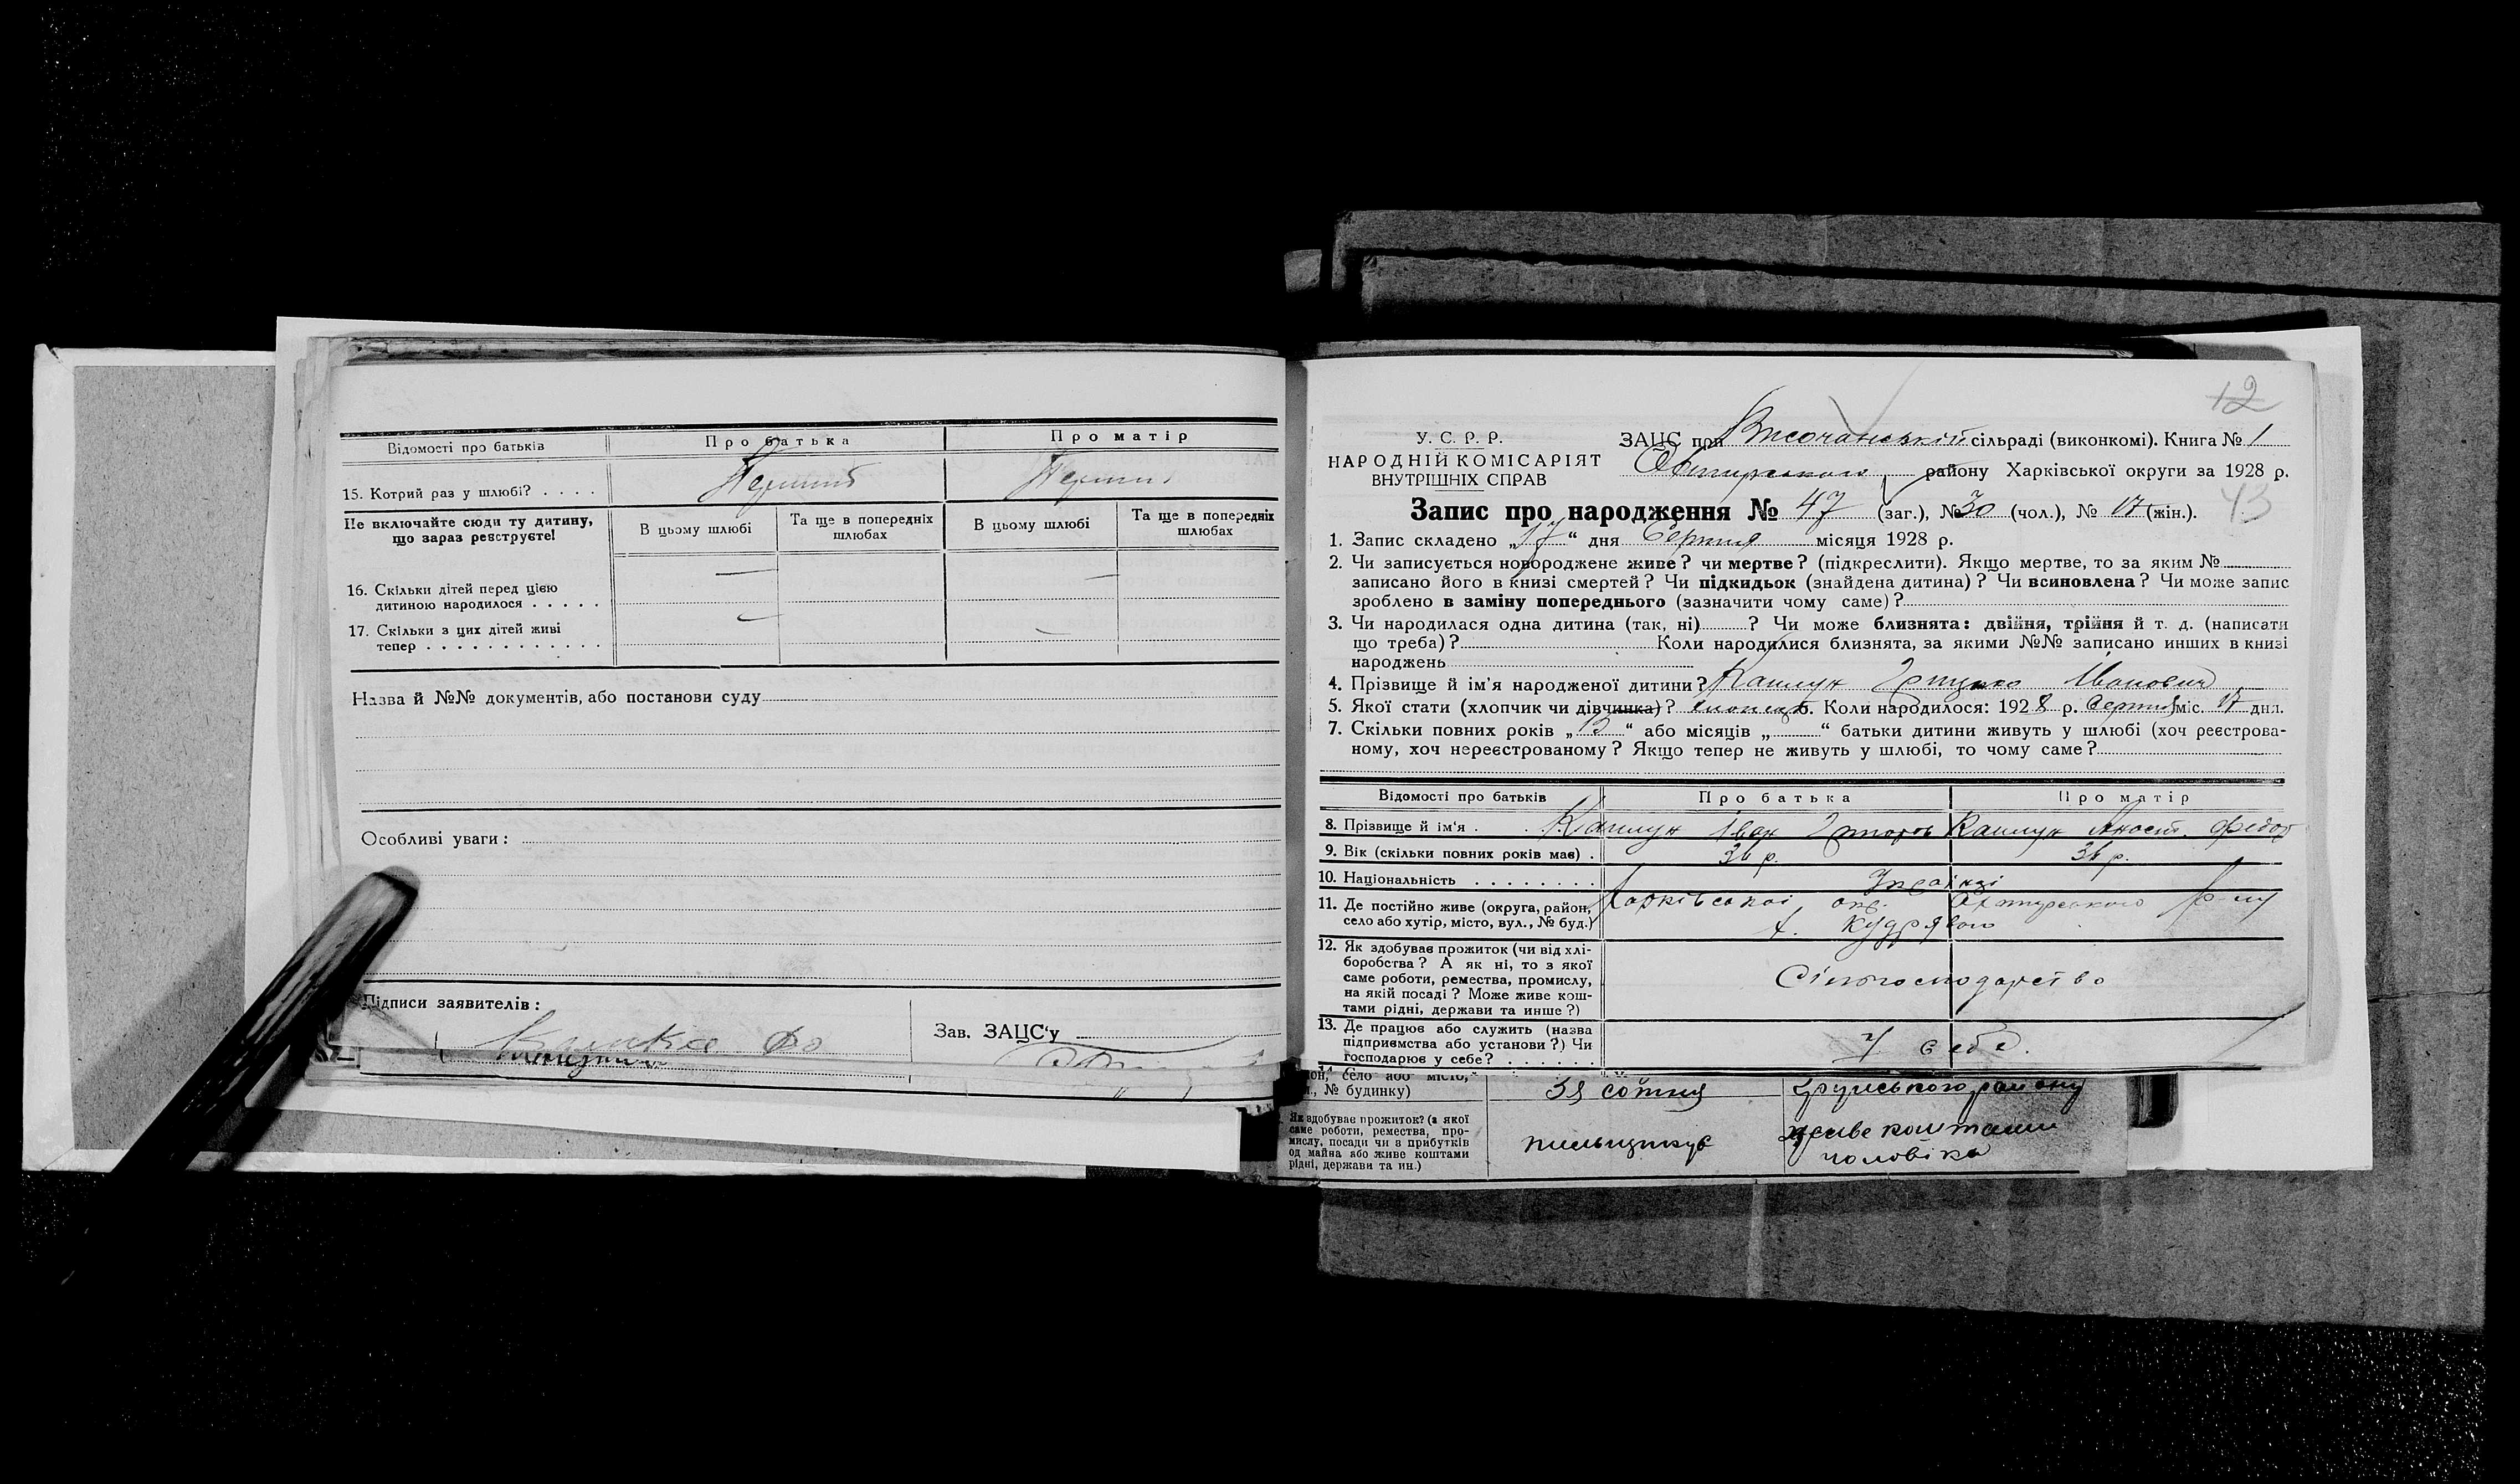 Відомості про батьків Про батька Про матір
15. Котрий раз у шлюбі? . . . . Перший Перший
Не включайте сюди ту дитину, що зараз реєструєте! В цьому шлюбі Та ще в попередніх шлюбах В цьому шлюбі Та ще в попередніх шлюбах
16. Скільки дітей перед цією
дитиною народилося . . . . . — —
17. Скільки з цих дітей живі
тепер . . . . . . . . . . . . — —
Назва й №№ документів, або постанови суду
Особливі уваги:
Підписи заявителів:
Зав. ЗАЦС'у
12
У. С. Р. Р.
НАРОДНІЙ КОМІСАРІЯТ
ВНУТРІШНІХ СПРАВ
ЗАЦС при сільраді (виконкомі). Книга № 1
Охтирського району Харківської округи за 1928 р.
43
Запис про народження № 47 (заг.), № 30 (чол.), № 17 (жін.).
1. Запис складено „17“ дня Серпня місяця 1928 р.
2. Чи записується новороджене живе? чи мертве? (підкреслити). Якщо мертве, то за яким №
записано його в книзі смертей? Чи підкидьок (знайдена дитина)? Чи всиновлена? Чи може запис
зроблено в заміну попереднього (зазначити чому саме)?
3. Чи народилася одна дитина (так, ні) ? Чи може близнята: двійня, трійня й т. д. (написати
що треба)? Коли народилися близнята, за якими №№ записано инших в книзі
народжень
4. Прізвище й ім'я народженої дитини? Іванович
5. Якої стати (хлопчик чи дівчинка)? хлопець 6. Коли народилося: 1928 р. Серпня міс. 17 дня.
7. Скільки повних років „13“ або місяців „ “ батьки дитини живуть у шлюбі (хоч реєстрова-
ному, хоч нереєстрованому? Якщо тепер не живуть у шлюбі, то чому саме?
Відомості про батьків Про батька Про матір
8. Прізвище й ім'я . Іван Федор
9. Вік (скільки повних років має) . 36 р. 36 р.
10. Національність . . . . . . . . Українці
11. Де постійно живе (округа, район,
село або хутір, місто, вул., № буд.) Харківської окр. Охтирського р-ну
х. Кудрявого
12. Як здобуває прожиток (чи від хлі-
боробства? А як ні, то з якої
саме роботи, ремества, промислу,
на якій посаді? Може живе кош-
тами рідні, держави та инше?) Сільгосподарство
13. Де працює або служить (назва
підприємства або установи?) Чи
господарює у себе? . . . . . . У себе.
село або місто,
№ будинку) 38 сотня району
Як здобуває прожиток? (з якої
саме роботи, ремества, про-
мислу, посади чи з прибутків
од майна або живе коштами
рідні, держави та ин.) живе коштами
чоловіка